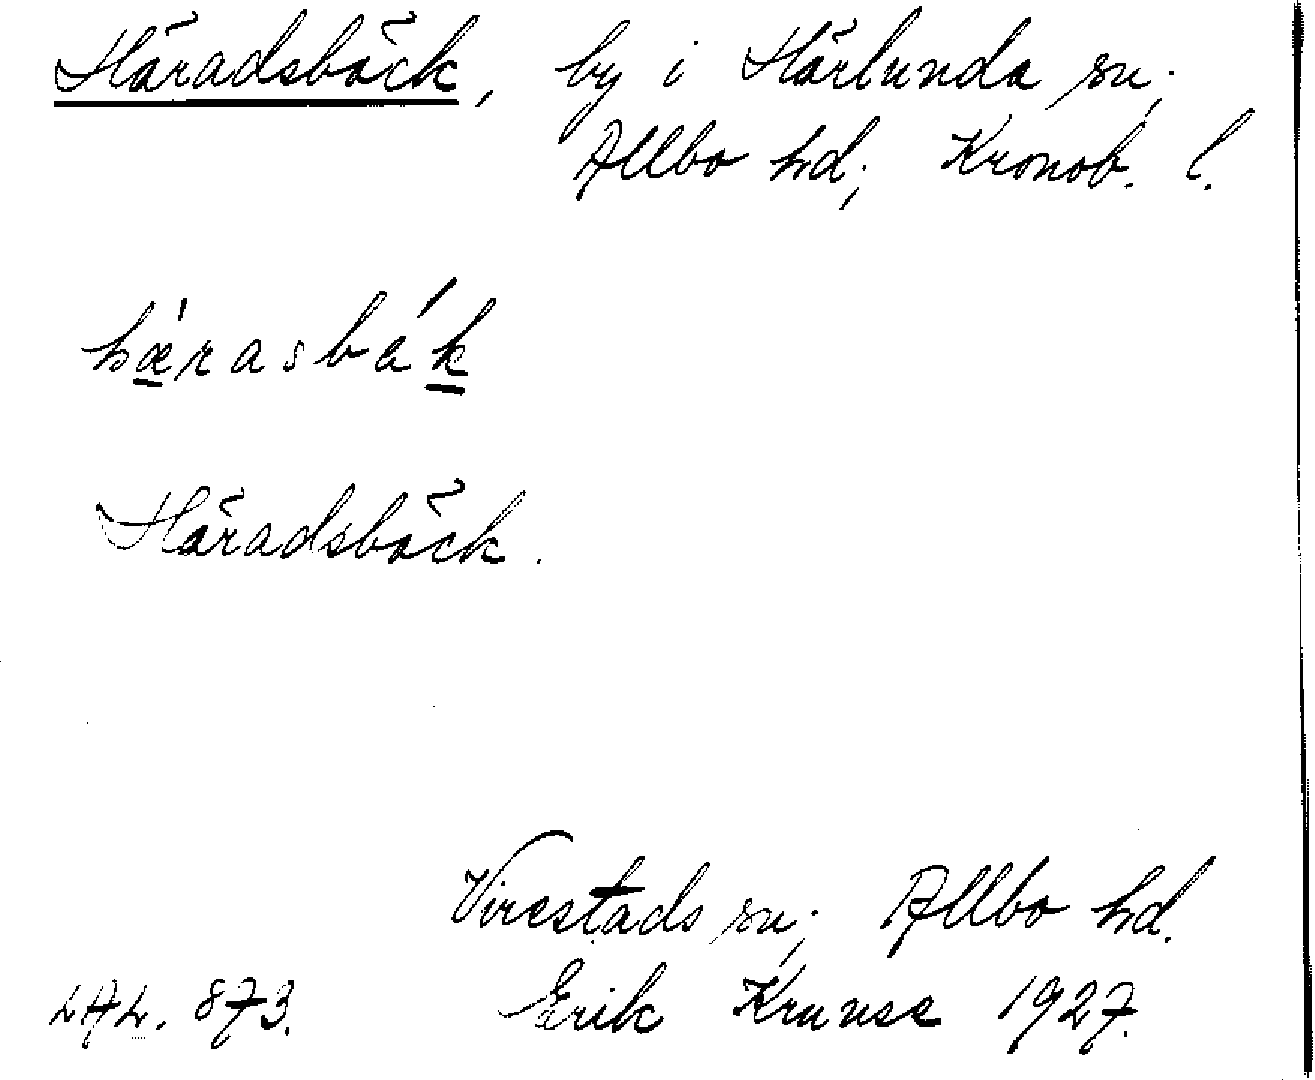 Häradsbäck, by i Härlunda sn;
Allbo hd; Kronob. l.
hǽ̱rasbáḵ
Häradsbäck.
Virestads sn; Allbo hd.
LAL. 873. Erik Kruuse 1927.